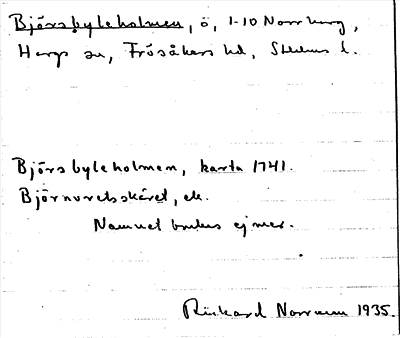 Björsbyleholmen, ö, 1-10 Norrburg,
Hargs sn, Frösåkers hd, Sthlms l.
Björsbyleholmen, karta 1741.
Björnvretsskäret, ek.
Namnet brukas ej mer.
Rickard Norrman 1935.